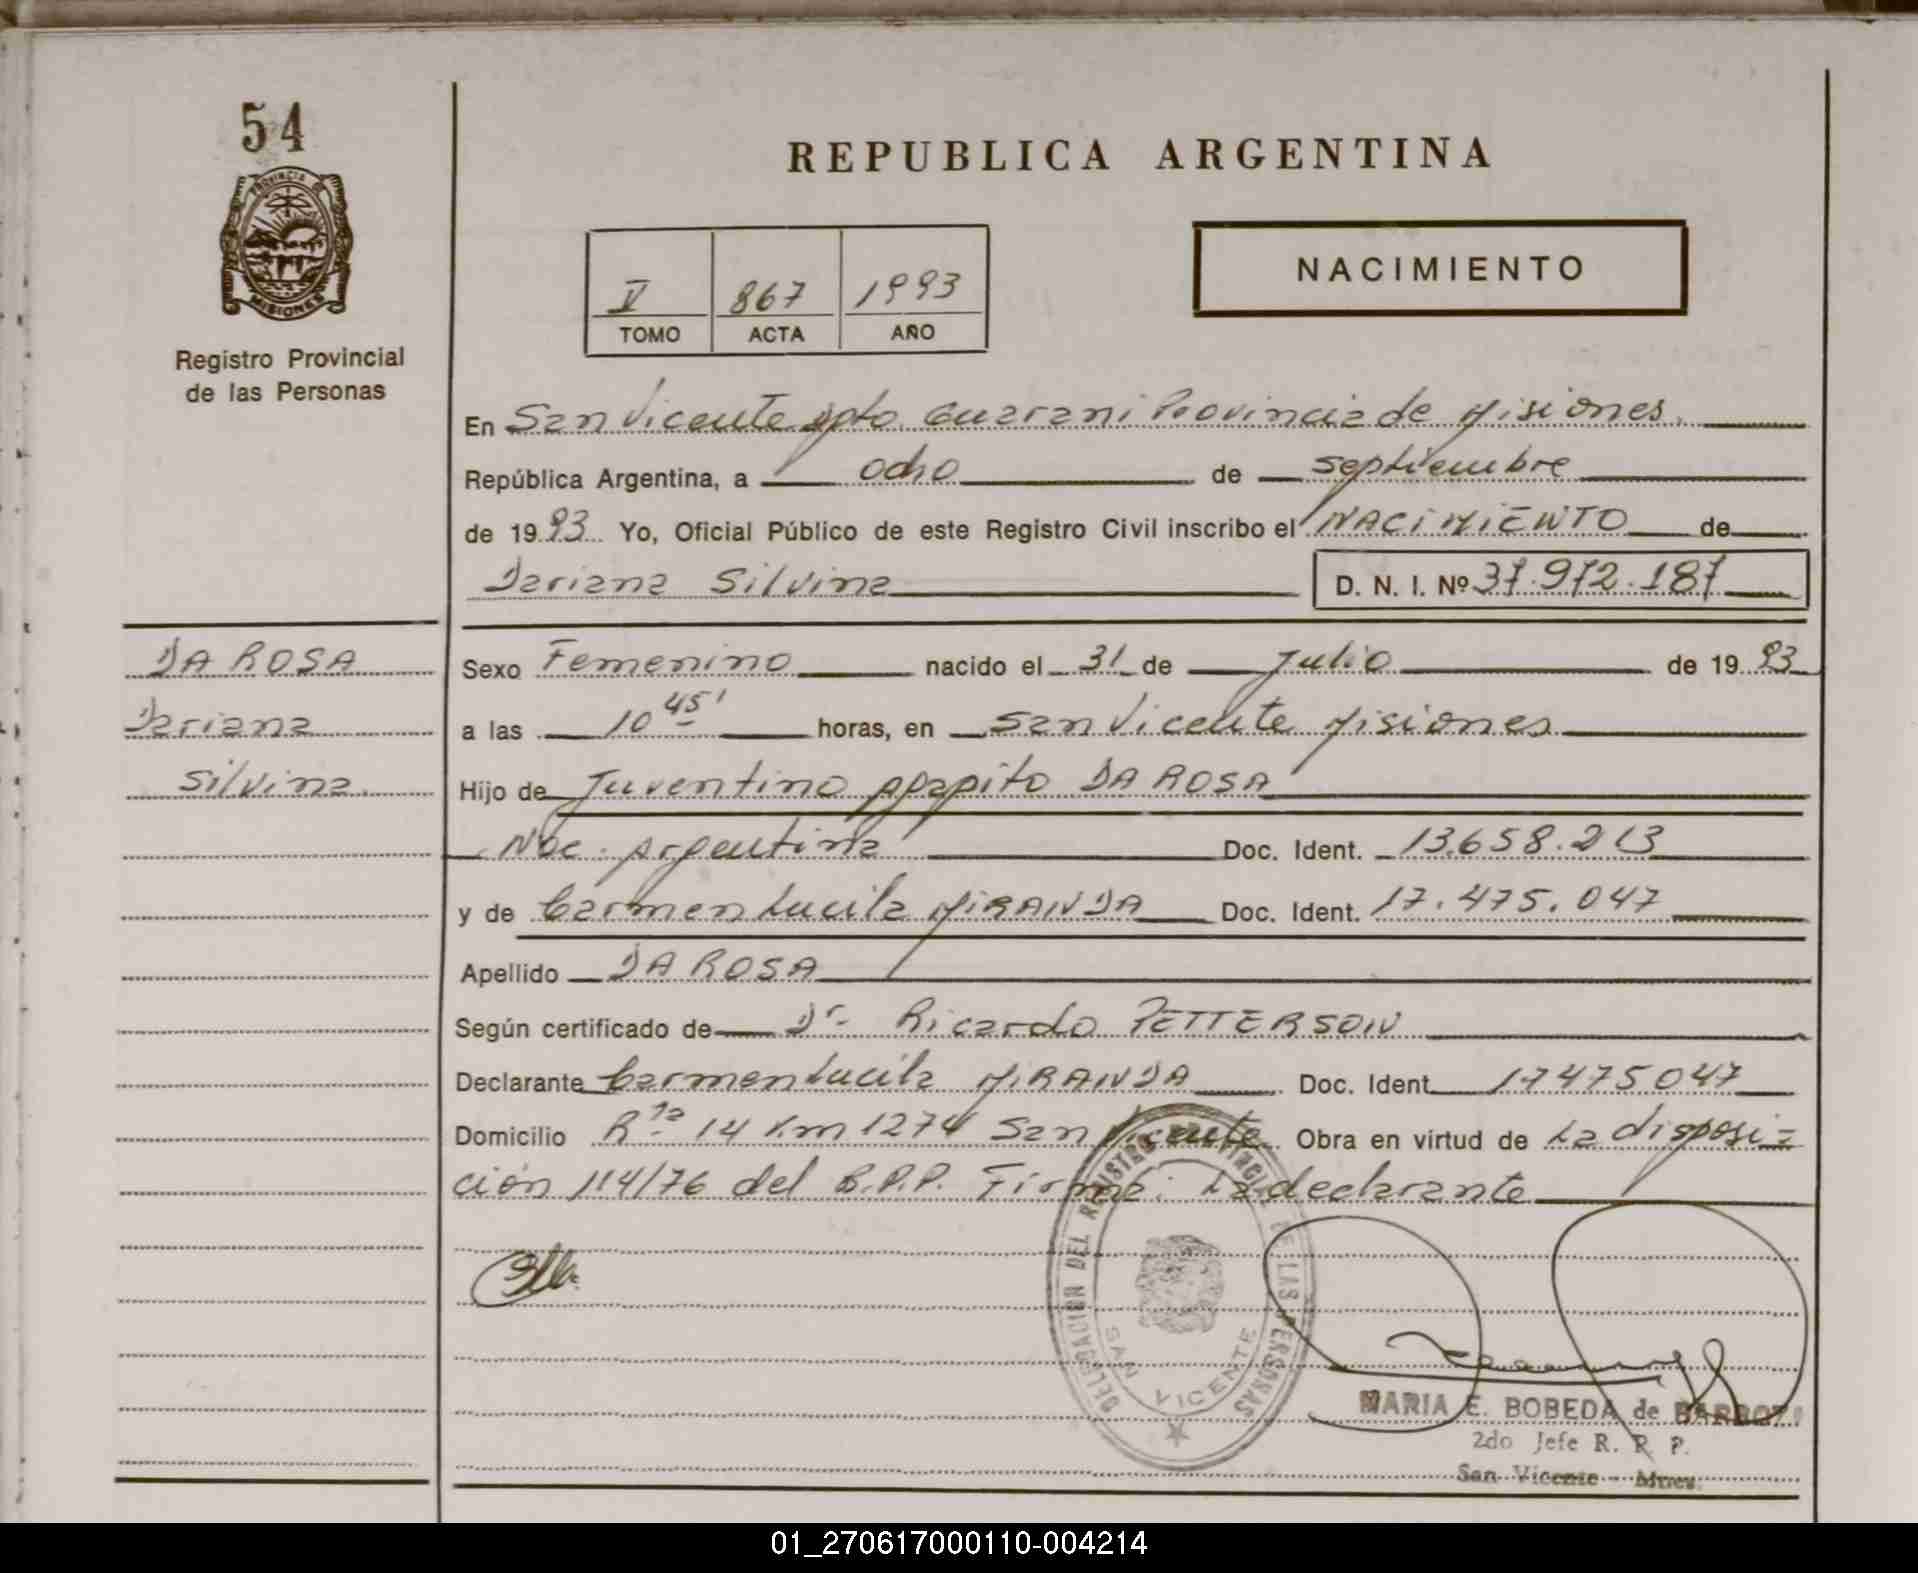 54
PROVINCIA DE
MISIONES
Registro Provincial
de las Personas
REPUBLICA ARGENTINA
V 867 1993
TOMO ACTA AÑO
NACIMIENTO
En San Vicente Dpto. Guarani Provincia de Misiones.
República Argentina, a ocho de septiembre
de 1993 Yo, Oficial Público de este Registro Civil inscribo el NACIMIENTO de
Dariana Silvina D. N. I. Nº 37.972.187
DA ROSA
Dariana
Silvina.
Sexo Femenino nacido el 31 de Julio de 1993
a las 10 45' horas, en San Vicente Misiones
Hijo de Juventino Agapito DA ROSA
Nac. Argentina Doc. Ident. 13.658.213
y de Carmen Lucila MIRANDA Doc. Ident. 17.475.047
Apellido DA ROSA
Según certificado de Dr. Ricardo PETTERSON
Declarante Carmen Lucila MIRANDA Doc. Ident 17475047
Domicilio Rta 14 Km 1274 San Vicente Obra en virtud de La disposi=
ción 114/76 del R.P.P. Firma: La declarante
DELEGACION DEL REGISTRO PROVINCIAL DE LAS PERSONAS
SAN VICENTE
MARIA E. BOBEDA de
2do Jefe R. R. P.
San Vicente - Mnes.
01_270617000110-004214